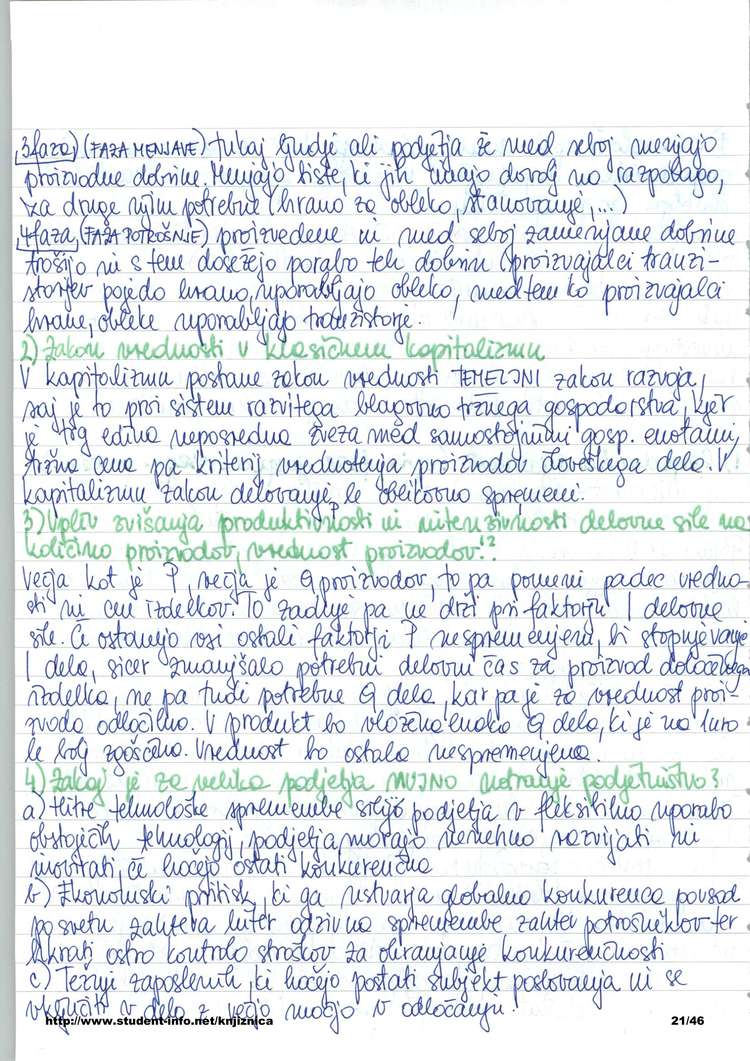 3faza) (FAZA MENJAVE) tukaj ljudje ali podjetja že med seboj menjajo
proizvodne dobrine. Menjajo tiste, ki jih imajo dovolj na razpolago,
za druge njim potrebne (hrano za obleko, stanovanje,...)
4faza (FAZA POTROŠNJE) proizvedene in med seboj zamenjane dobrine
trošijo in s tem dosežejo porabo teh dobrin (proizvajalci tranzi-
storjev pojedo hrano, uporabljajo obleko, medtem ko proizvajalci
hrane, obleke uporabljajo tranzistorje.
2) Zakon vrednosti v klasičnem kapitalizmu
V kapitalizmu postane zakon vrednosti TEMELJNI zakon razvoja,
saj je to prvi sistem razvitega blagovno tržnega gospodarstva, kjer
je trg edina neposredna zveza med samostojnimi gosp. enotami,
tržna cena pa kriterij vrednotenja proizvodov človeškega dela. V
kapitalizmu zakon delovanje le oblikovno spremeni.
3) Vpliv zvišanja produktivnosti in intenzivnosti delovne sile na
količino proizvodov, vrednost proizvodov??
Večja kot je P, večja je Q proizvodov, to pa pomeni padec vredno-
sti in cen izdelkov. To zadnje pa ne drži pri faktorju I delovne
sile. Če ostanejo vsi ostali faktorji P nespremenjeni, bi stopnjevanje
I dela, sicer zmanjšalo potrebni delovni čas za proizvod določenega
izdelka, ne pa tudi potrebne Q dela, kar pa je za vrednost proi-
zvoda odločilno. V produkt bo vložena enaka Q dela, ki je na 1uro
le bolj zgoščena. Vrednost bo ostala nespremenjena.
4) Zakaj je za velika podjetja NUJNO notranje podjetništvo?
a) Hitre tehnološke spremembe silijo podjetja v fleksibilno uporabo
obstoječih tehnologij, podjetja morajo nenehno razvijati in
inovirati, če hočejo ostati konkurenčna
b) Ekonomski pritisk, ki ga ustvarja globalna konkurenca povsod
po svetu zahteva hiter odziv na spremembe zahtev potrošnikov ter
hkrati ostro kontrolo stroškov za ohranjanje konkurenčnosti
c) Težnji zaposlenih, ki hočejo postati subjekt poslovanja in se
vključiti v delo z večjo močjo v odločanju.
http://www.student-info.net/knjiznica 21/46